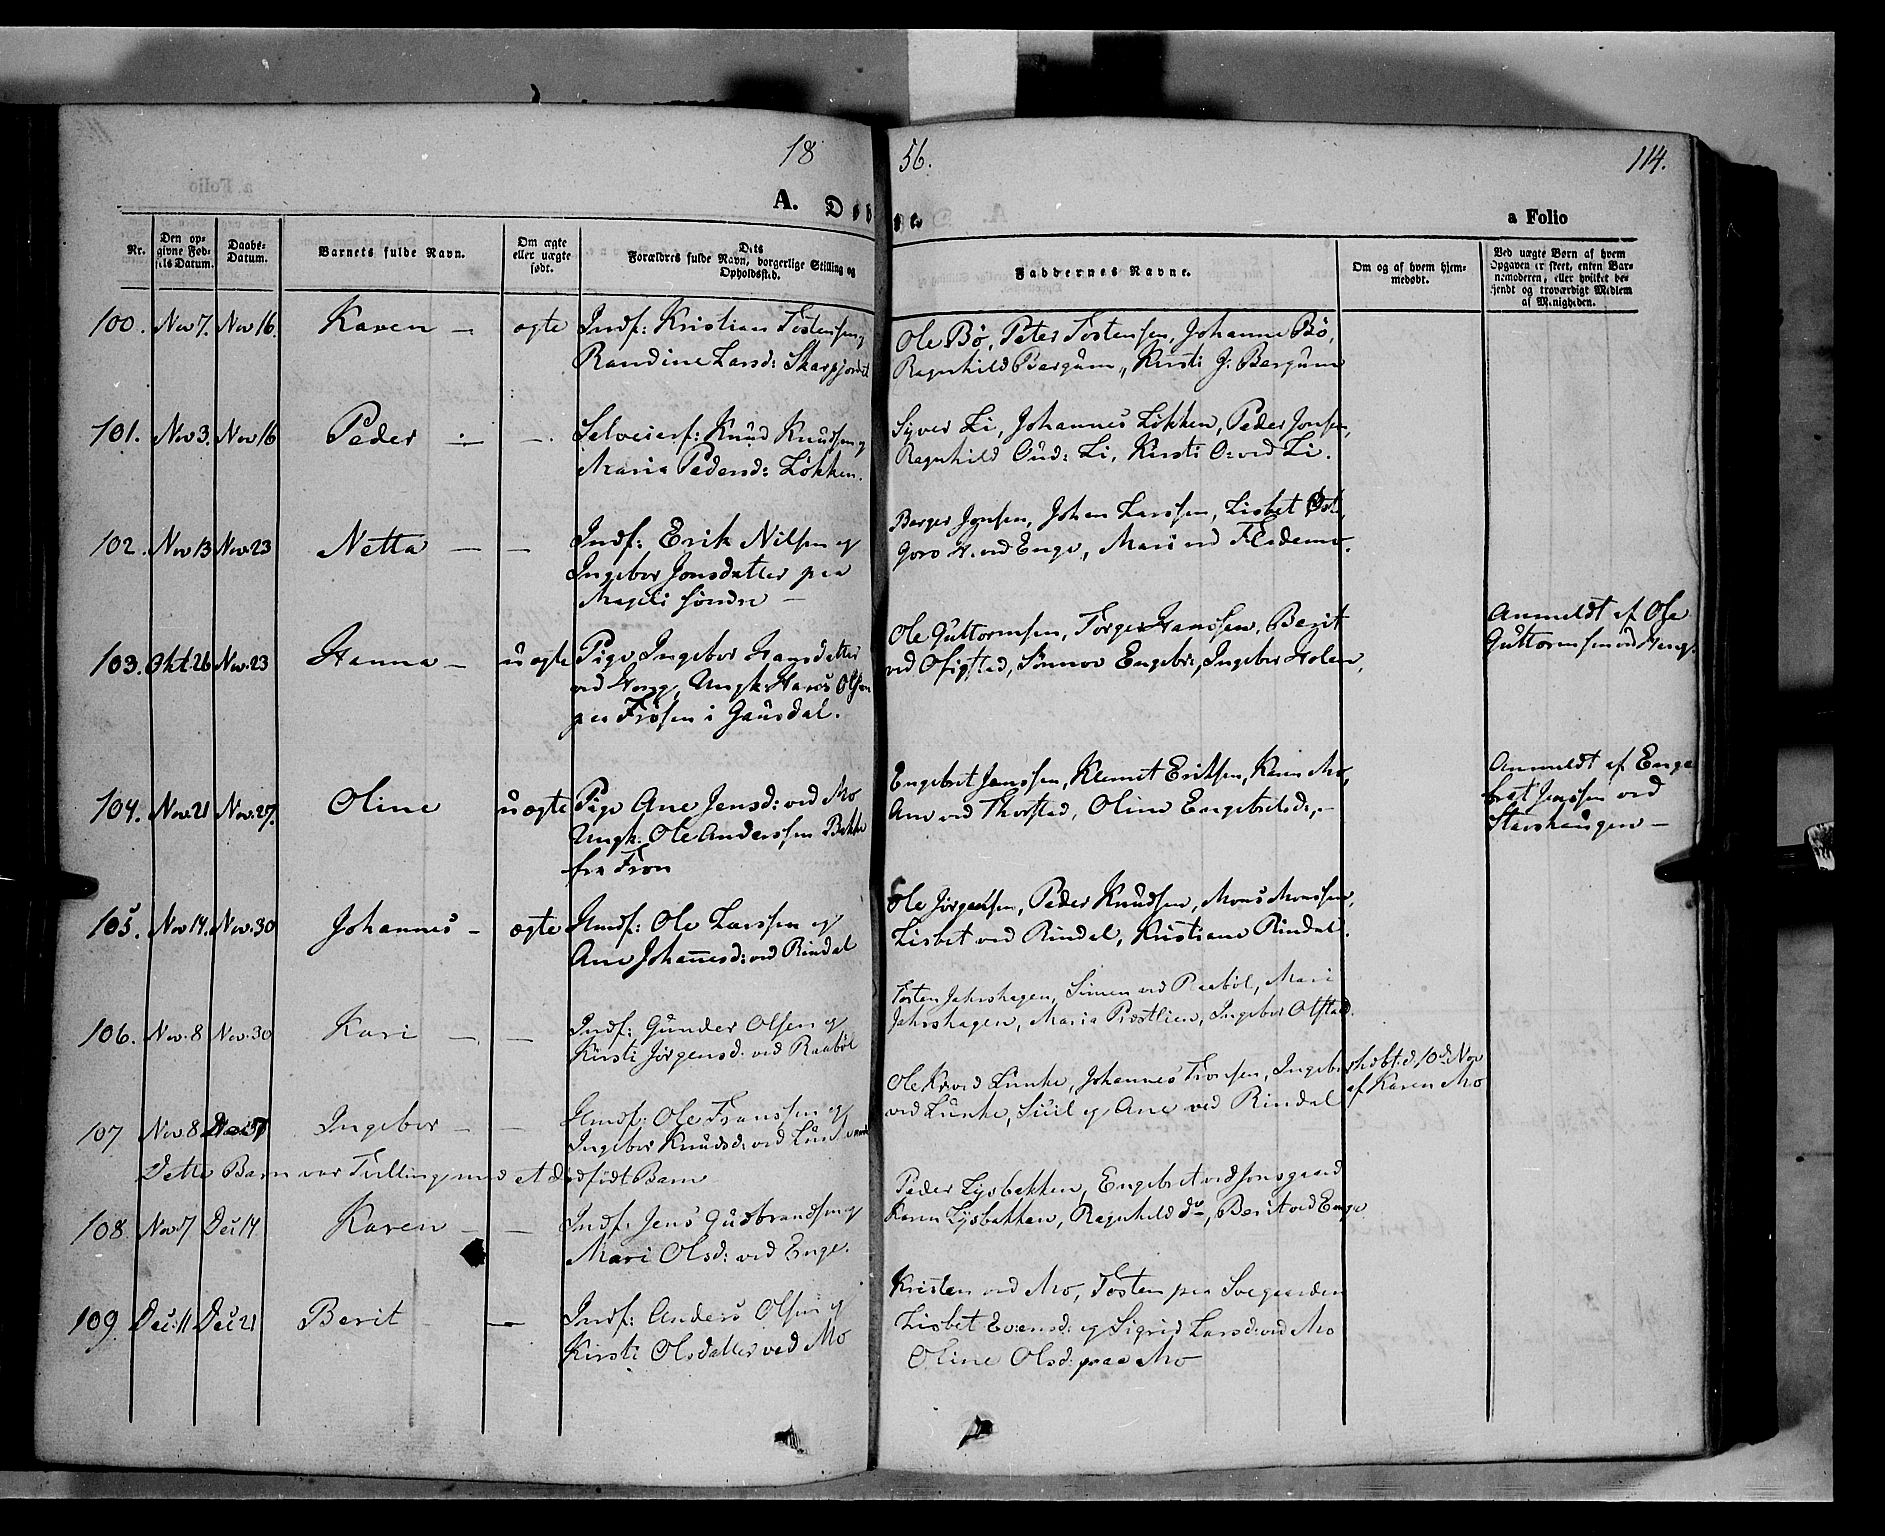 18 56. 114.
A. Døbte a Folio
Nr.
Den op-
givne Fød-
sels Datum.
Daabs-
Datum.
Barnets fulde Navn.
Om ægte
eller uægte
født.
Dets
Forældres fulde Navn, borgerlige Stilling og
Opholdssted.
Faddernes Navne.
Om og af hvem hjem-
medøbt.
Ved uægte Børn af hvem
Opgaven er skeet, enten Bar-
nemoderen, eller hvilket be-
kjendt og troværdigt Medlem
af Menigheden.
100. Nov 7. Nov 16. Karen — ægte Indf: Kristian Tostensen og
Randine Larsd:
Ole Bø, Peter Tostensen, Johanne Bø,
Ragnhild Bergum, Kirsti J. Bergum
101. Nov 3. Nov 16 Peder — — Selveierf: Knud Knudsen og
Maria Pedersd: Løkken.
Syver Li, Johannes Løkken, Peder Jonsen,
Ragnhild Gud: Li, Kirsti O: ved Li.
102. Nov 13 Nov. 23 Netta — — Indf: Erik Nilsen og
Ingebor Jonsdatter paa
Mageli søndre —
Berger Jonsen, Johan Larssen, Lisbet
Goro H. ved Enge, Mari ved Flademo.
103. Okt. 26 Nov. 23 Hanna — uægte Pige Ingebor Hansdatter
ved Heng, Ungk: Hans Olsen
paa Frøsen i Gausdal.
Ole Guttormsen, Torger Hanssen, Berit
ved Ofigstad, Sønnov Engebr:, Ingebor Holen,
Anmeldt af Ole
Guttormsen ved Heng.
104. Nov. 21 Nov. 27. Oline uægte Pige Ane Jensd: ved Mo
Ungk: Ole Anderssen Bakke
fra Fron
Engebret Jenssen, Klemet Eriksen, Karen Mo,
Ane ved Thorstad, Oline Engebretsd: —
Anmeldt af Enge
bret Jenssen ved
Stavshaugen —
105. Nov 14. Nov. 30 Johannes — ægte Gmdf: Ole Larssen og
Ane Johannesd: ved Rindal
Ole Jørgensen, Peder Knudsen, Mons Monssen,
Lisbet ved Rindal, Kristiane Rindal.
106. Nov. 8 Nov. 30 Kari — — Indf: Gunder Olsen og
Kirsti Jørgensd: ved Raabøl
Tosten Jahrshagen, Simen ved Raabøl, Mari
Jahrshagen, Maria Præstlien, Ingebor Olstad.
107 Nov. 8 Dec 7 Ingebor — — Gmdf: Ole Franssen og
Ingebor Knudsd: ved Lunke
Ole K ved Lunke, Johannes Fronsen, Ingebor
ved Lunke, Siul og Ane ved Rindal
hdbt: d. 10de Nov
af Karen Mo
Dette Barn var Tvilling med et dødfødt Barn
108. Nov 7 Dec 14 Karen — — Indf: Jens Gudbrandsen og
Mari Olsd: ved Enge.
Peder Lysbakken, Engebret ved Jonsgaard
Karen Lysbakken, Ragnhild do —, Berit ved Enge
109. Dec: 11 Dec 21 Berit — Indf: Anders Olsen og
Kirsti Olsdatter ved Mo
Kristen ved Mo, Tosten paa Svegaarden
Lisbet Evensd: og Sigrid Larsd: ved Mo
Oline Olsd: paa Mo